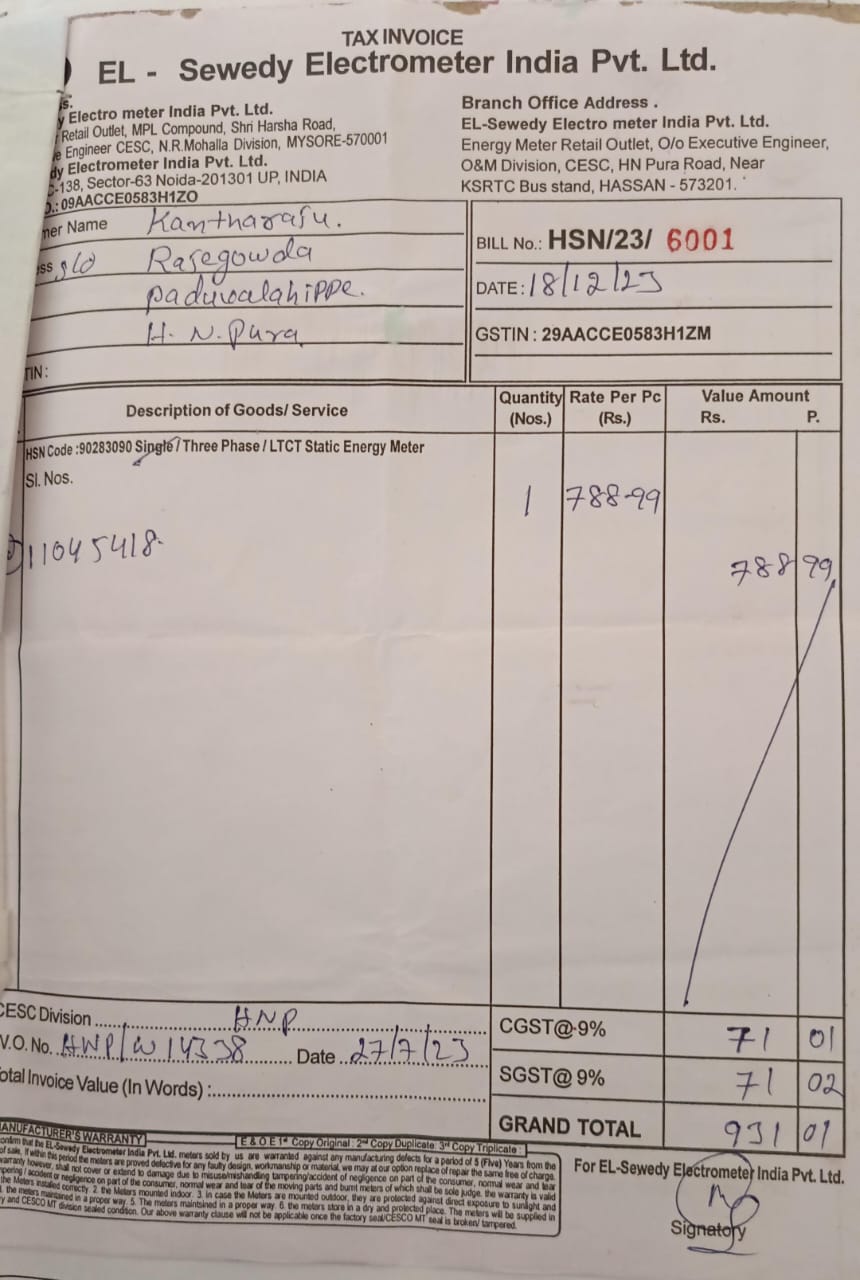 TAX INVOICE
EL - Sewedy Electrometer India Pvt. Ltd.
s.
y Electro meter India Pvt. Ltd.
Retail Outlet, MPL Compound, Shri Harsha Road,
e Engineer CESC, N.R.Mohalla Division, MYSORE-570001
dy Electrometer India Pvt. Ltd.
C-138, Sector-63 Noida-201301 UP, INDIA
O.: 09AACCE0583H1ZO
Branch Office Address .
EL-Sewedy Electro meter India Pvt. Ltd.
Energy Meter Retail Outlet, O/o Executive Engineer,
O&M Division, CESC, HN Pura Road, Near
KSRTC Bus stand, HASSAN - 573201.
mer Name Kantharaju.
ess s/o Rajegowda
paduvalahippe.
H. N. Pura
TIN :
BILL No.: HSN/23/ 6001
DATE : 18/12/23
GSTIN : 29AACCE0583H1ZM
Description of Goods/ Service
Quantity (Nos.)
Rate Per Pc (Rs.)
Value Amount
Rs. P.
HSN Code :90283090 Single / Three Phase / LTCT Static Energy Meter
Sl. Nos.
1 788-99
11045418
788 99
CESC Division HNP
V.O. No. HNP/W14338 Date 27/7/23
otal Invoice Value (In Words) :
CGST@ 9% 71 01
SGST@ 9% 71 02
GRAND TOTAL 931 01
MANUFACTURER'S WARRANTY E & O E 1st Copy Original : 2nd Copy Duplicate: 3rd Copy Triplicate :
confirm that the EL-Sewedy Electrometer India Pvt. Ltd. meters sold by us are warranted against any manufacturing defects for a period of 5 (Five) Years from the
of sale, if within this period the meters are proved defective for any faulty design, workmanship or material, we may at our option replace of repair the same free of charge.
warranty however, shall not cover or extend to damage due to misuse/mishandling tampering/accident of negligence on part of the consumer, normal wear and tear
pering / accident or negligence on part of the consumer, normal wear and tear of the moving parts and burnt meters of which shall be sole judge. the warranty is valid
the Meters installed correctly 2. the Meters mounted indoor. 3. in case the Meters are mounted outdoor, they are protected against direct exposure to sunlight and
. the meters maintained in a proper way. 5. The meters maintained in a proper way. 6. the meters store in a dry and protected place. The meters will be supplied in
y and CESCO MT division sealed condition. Our above warranty clause will not be applicable once the factory seal/CESCO MT seal is broken/ tampered.
For EL-Sewedy Electrometer India Pvt. Ltd.
Signatory